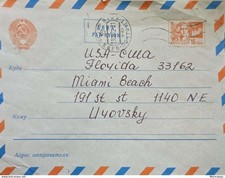 USA - США
Florida 33162
Куда
Miami Beach
191 st st 1140 N E
Кому
Адрес отправителя